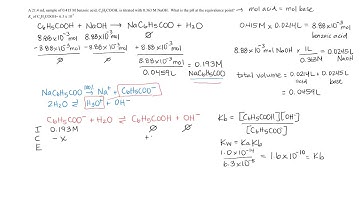 A 21.4 mL sample of 0.415 M benzoic acid, C₆H₅COOH, is titrated with 0.363 M NaOH. What is the pH at the equivalence point? → mol acid = mol base
Kₐ of C₆H₅COOH = 6.3 x 10⁻⁵
C₆H₅COOH + NaOH → NaC₆H₅COO + H₂O
8.88x10⁻³mol 8.88x10⁻³ ∅
-8.88x10⁻³mol -8.88x10⁻³ +8.88x10⁻³
∅ ∅ 8.88x10⁻³ mol = 0.193M
0.0459L NaC₆H₅COO
0.415M x 0.0214L = 8.88x10⁻³ mol
benzoic acid
8.88x10⁻³ mol NaOH x 1L = 0.0245L
0.363M NaOH
total volume: 0.0214L + 0.0245L
acid base
= 0.0459L
NaC₆H₅COO 100% → Na⁺ + C₆H₅COO⁻
2H₂O ⇌ H₃O⁺ + OH⁻
C₆H₅COO⁻ + H₂O ⇌ C₆H₅COOH + OH⁻
I 0.193M ∅ ∅
C -x +
E
Kb = [C₆H₅COOH][OH⁻]
[C₆H₅COO⁻]
Kw = KaKb
1.0x10⁻¹⁴ = 1.6x10⁻¹⁰ = Kb
6.3x10⁻⁵